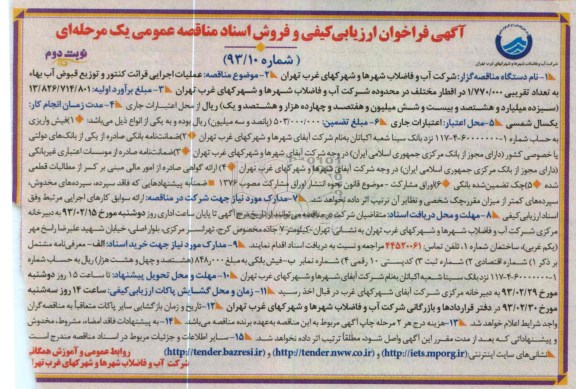 آگهی فراخوان ارزیابی کیفی و فروش اسناد مناقصه عمومی یک مرحله‌ای
( شماره ۹۳/۱۰ )
نوبت دوم
شرکت آب و فاضلاب شهرها و شهرکهای غرب تهران
۱- نام دستگاه مناقصه گزار: شرکت آب و فاضلاب شهرها و شهرکهای غرب تهران ۲- موضوع مناقصه: عملیات اجرایی قرائت کنتور و توزیع قبوض آب بهاء
به تعداد تقریبی ۱/۷۷۰/۰۰۰ در اقطار مختلف در محدوده شرکت آب و فاضلاب شهرها و شهرکهای غرب تهران ۳- مبلغ برآورد اولیه: ۱۳/۸۲۶/۷۱۴/۸۰۱
(سیزده میلیارد و هشتصد و بیست و شش میلیون و هفتصد و چهارده هزار و هشتصد و یک) ریال از محل اعتبارات جاری ۴- مدت زمان انجام کار:
یکسال شمسی ۵- محل اعتبار: اعتبارات جاری ۶- مبلغ تضمین: ۵۰۳/۰۰۰/۰۰۰ (پانصد و سه میلیون) ریال بوده و به یکی از انواع ذیل می‌باشد: ۱) فیش واریزی
به حساب شماره ۱-۱۱۷-۴-۶۰۰۰۰۰ نزد بانک سپنا شعبه اکباتان بنام شرکت آبفای شهرها و شهرکهای غرب تهران ۲) ضمانت‌نامه بانکی صادره از یکی از بانک‌های دولتی
یا خصوصی کشور (دارای مجوز از بانک مرکزی جمهوری اسلامی ایران) در وجه شرکت آبفای شهرها و شهرکهای غرب تهران ۳) ضمانت‌نامه صادره از موسسات اعتباری غیربانکی
(دارای مجوز از بانک مرکزی جمهوری اسلامی ایران) در وجه شرکت آبفای شهرها و شهرکهای غرب تهران ۴) ارائه گواهی صادره از امور مالی مبنی بر کسر از مطالبات قطعی
شده ۵) چک تضمین‌شده بانکی ۶) اوراق مشارکت - موضوع قانون نحوه انتشار اوراق مشارکت مصوب ۱۳۷۶ ضمناً به پیشنهادهایی که فاقد سپرده، سپرده‌های مخدوش،
سپرده‌های کمتر از میزان مقرر، چک شخصی و نظایر آن ترتیب اثر داده نخواهد شد. ۷- مدارک مورد نیاز جهت شرکت در مناقصه: ارائه سوابق کارهای اجرایی مرتبط وفق
اسناد ارزیابی کیفی ۸- مهلت و محل دریافت اسناد: متقاضیان شرکت در مناقصه می‌توانند از تاریخ درج آگهی تا پایان ساعت اداری روز دوشنبه مورخ ۹۳/۰۲/۱۵ به دبیرخانه
مرکزی شرکت آب و فاضلاب شهرها و شهرکهای غرب تهران به نشانی: تهران- کیلومتر ۷ جاده مخصوص کرج، تهرانسر مرکزی، بلوار اصلی، خیابان شهید علیرضا راسخ مهر
(یکم غربی)، ساختمان شماره ۱، تلفن تماس: ۴۴۵۳۰۶۱ مراجعه و نسبت به دریافت اسناد اقدام نمایند. ۹- مدارک مورد نیاز جهت خرید اسناد: الف- معرفی‌نامه مشتمل
بر ذکر ۱) شماره اقتصادی ۲) شماره ثبت ۳) کدپستی ۱۰ رقمی ۴) شماره نمابر ب- فیش بانکی به مبلغ ۸۴۸/۰۰۰ (هشتصد و چهل و هشت هزار) ریال به حساب شماره
۱-۱۱۷-۴-۶۰۰۰۰۰ نزد بانک سپنا شعبه اکباتان بنام شرکت آبفای شهرها و شهرکهای غرب تهران ۱۰- مهلت و محل تحویل پیشنهاد: تا ساعت ۱۵ روز دوشنبه
مورخ ۹۳/۰۲/۲۹ به دبیرخانه مرکزی شرکت آبفای شهرکهای غرب در قبال اخذ رسید ۱۱- زمان و محل گشایش پاکات ارزیابی کیفی: ساعت ۱۴ روز سه‌شنبه
مورخ ۹۳/۰۲/۳۰ در دفتر قراردادها و بازرگانی شرکت آب و فاضلاب شهرها و شهرکهای غرب تهران ۱۲- تاریخ و زمان بازگشایی سایر پاکات متعاقباً به مناقصه گران
واجد شرایط اعلام خواهد شد. ۱۳- هزینه درج هر ۲ مرحله چاپ آگهی مربوط به این مناقصه به عهده برنده مناقصه می‌باشد. ۱۴- به پیشنهادات فاقد امضاء، مشروط، مخدوش
و پیشنهاداتی که بعد از مدت مقرر در این آگهی واصل شود، مطلقاً ترتیب اثر داده نخواهد شد. ۱۵- سایر اطلاعات و جزئیات مربوط در اسناد مناقصه مندرج است
نشانی‌های سایت اینترنتی: (http://iets.mporg.ir) و (http://tender.nww.co.ir) و (http://tender.bazresi.ir)
روابط عمومی و آموزش همگانی
شرکت آب و فاضلاب شهرها و شهرکهای غرب تهران